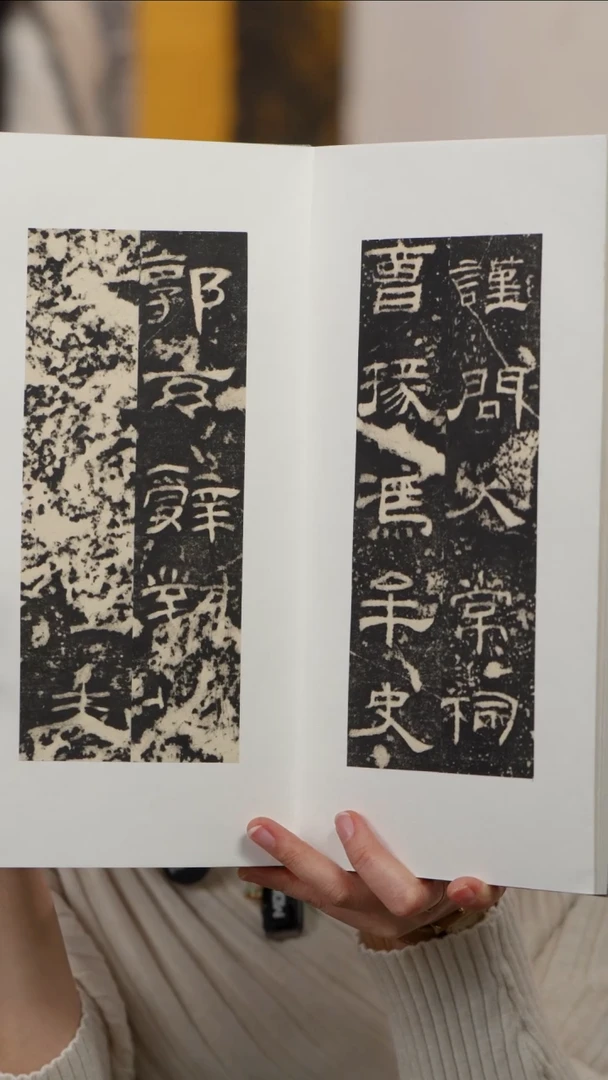 謹問大常祠
曹掾馮牟史
郭玄辭對
未